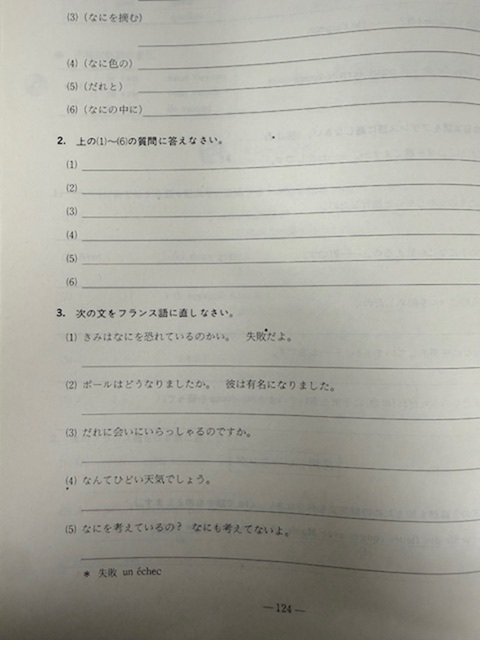 (3) (なにを摘む)
(4) (なに色の)
(5) (だれと)
(6) (なにの中に)
2. 上の(1)〜(6)の質問に答えなさい。
(1)
(2)
(3)
(4)
(5)
(6)
3. 次の文をフランス語に直しなさい。
(1) きみはなにを恐れているのかい。 失敗だよ。
(2) ポールはどうなりましたか。 彼は有名になりました。
(3) だれに会いにいらっしゃるのですか。
(4) なんてひどい天気でしょう。
(5) なにを考えているの? なにも考えてないよ。
* 失敗 un échec
—124—